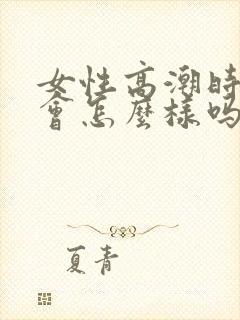 女性高潮時
會怎麼樣嗎
夏青